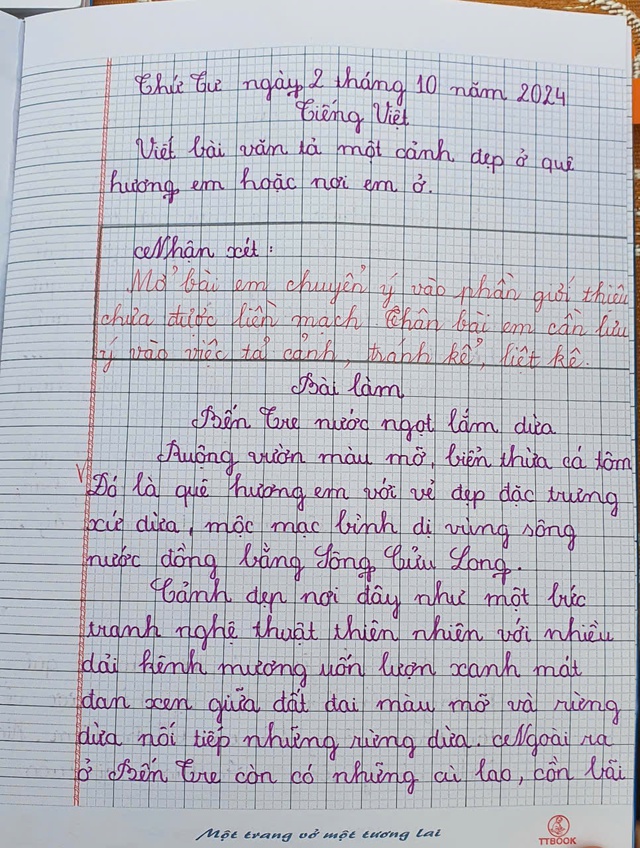 Thứ Tư ngày 2 tháng 10 năm 2024
Tiếng Việt
Viết bài văn tả một cảnh đẹp ở quê
hương em hoặc nơi em ở.
Nhận xét:
Mở bài em chuyển ý vào phần giới thiệu
chưa được liền mạch. Thân bài em cần lưu
ý vào việc tả cảnh, tránh kể, liệt kê.
Bài làm
Bến Tre nước ngọt lắm dừa
Ruộng vườn màu mỡ, biển thừa cá tôm
V Đó là quê hương em với vẻ đẹp đặc trưng
xứ dừa, mộc mạc bình dị vùng sông
nước đồng bằng Sông Cửu Long.
Cảnh đẹp nơi đây như một bức
tranh nghệ thuật thiên nhiên với nhiều
dải kênh mương uốn lượn xanh mát
đan xen giữa đất đai màu mỡ và rừng
dừa nối tiếp những rừng dừa. Ngoài ra
ở Bến Tre còn có những cù lao, cồn bãi
Một trang vở một tương lai
TTBOOK